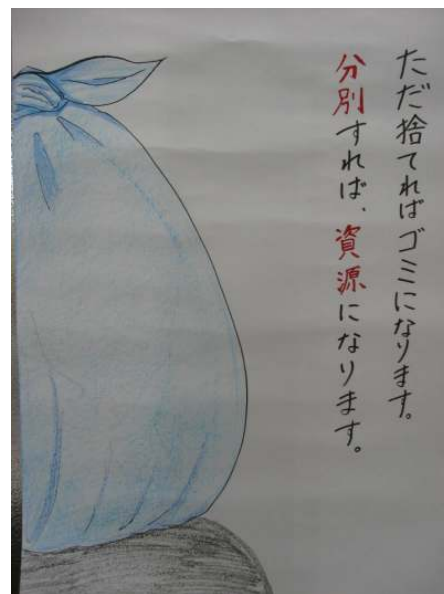 ただ捨てればゴミになります。
分別すれば、資源になります。